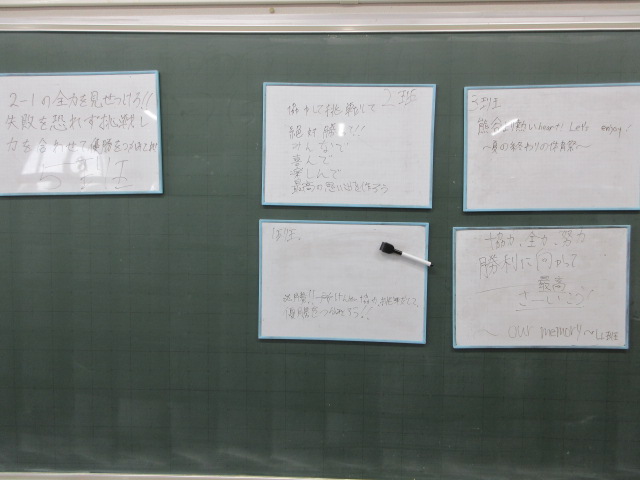 2-1の全力を見せつけろ!!
失敗を恐れず挑戦し
力を合わせて優勝をつかみとれ!
5班
2班
協力して挑戦して
絶対勝つ!!!
みんなで
喜んで
楽しんで
最高の思い出を作ろう
3班
熊谷より熱いheart! Let's enjoy!
1班.
優勝をつかみとろう!!
協力、全力、努力
勝利に向かって
最高
さーいこう!
〜 our memory 〜 4班